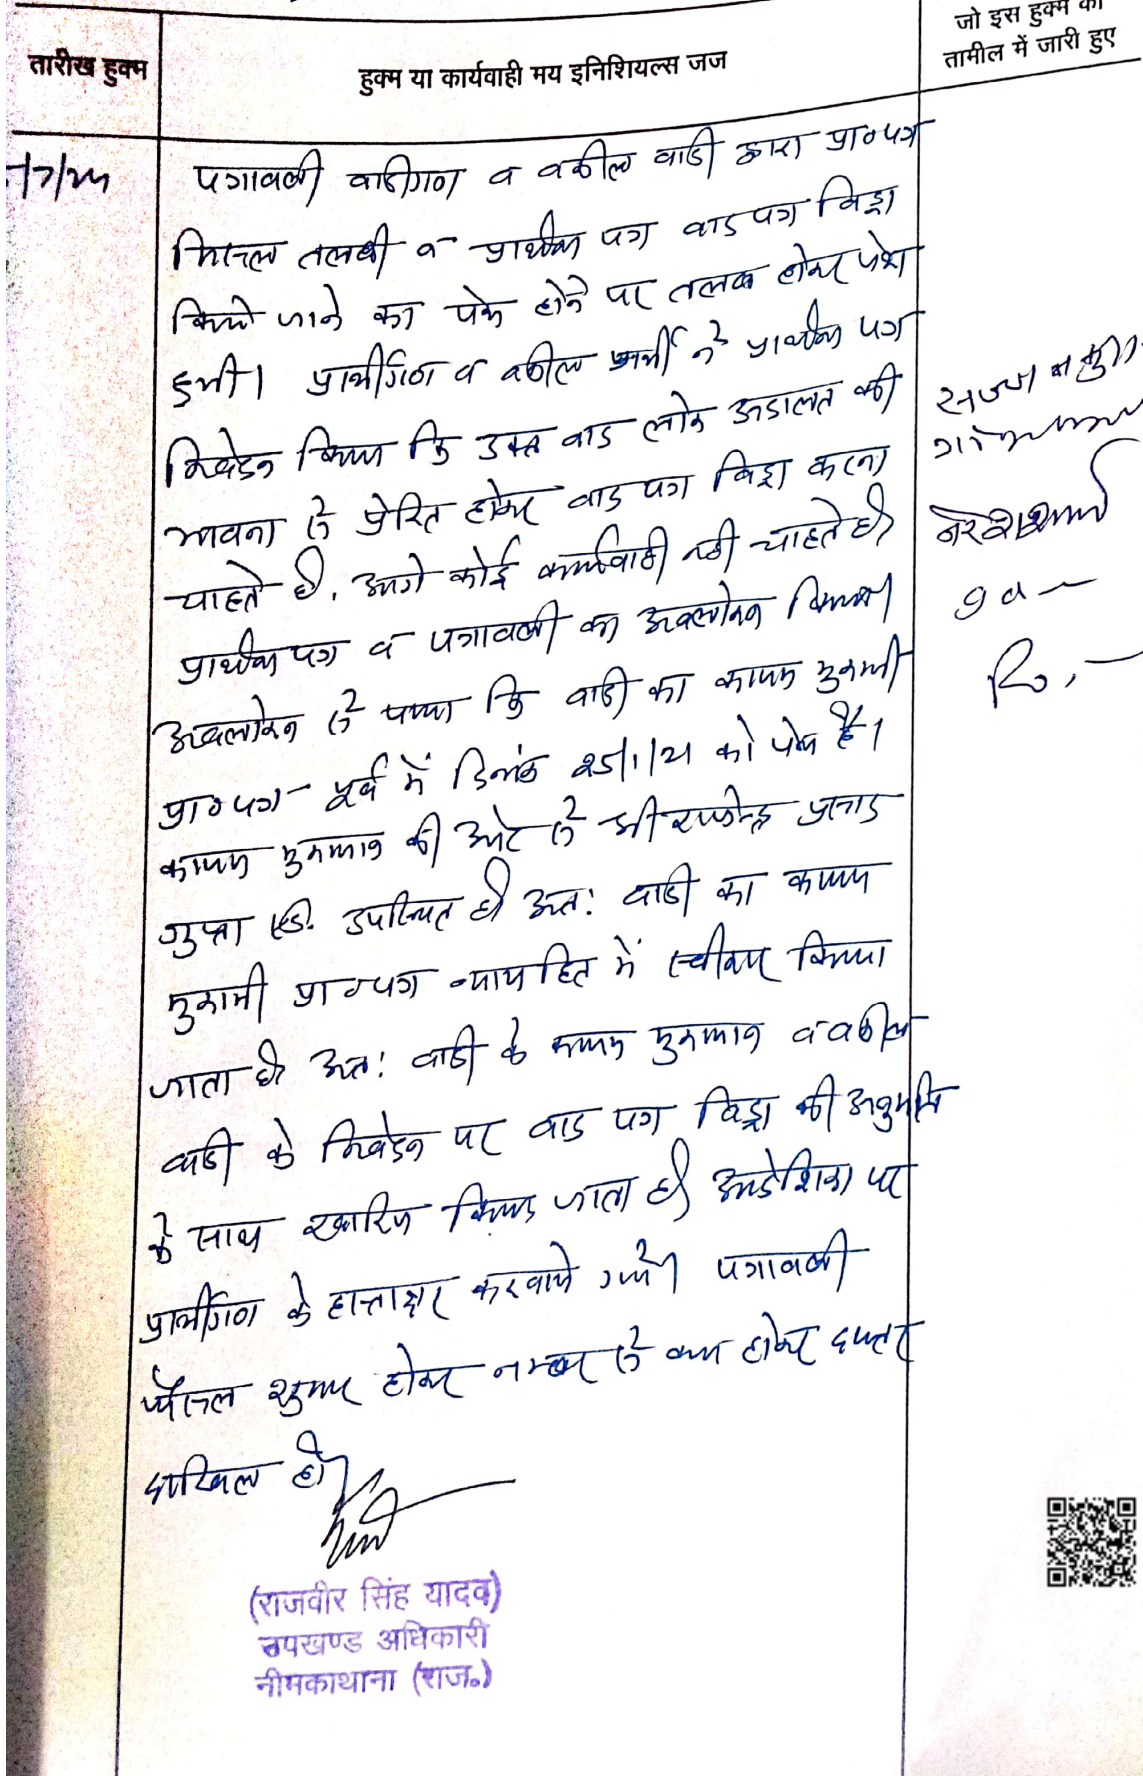 जो इस हुक्म की
तामील में जारी हुए
तारीख हुक्म
हुक्म या कार्यवाही मय इनिशियल्स जज
पत्रावली वादीगण व वकील वादी द्वारा प्रा०पत्र
मिसल तलबी व प्रार्थना पत्र वाद पत्र विड्रा
किये जाने का पेश होने पर तलब होकर पेश
हुयी। प्रार्थीगण व वकील प्रार्थी ने प्रार्थना पत्र
निवेदन किया कि उक्त वाद लोक अदालत की
भावना से प्रेरित होकर वाद पत्र विड्रा करना
चाहते है, आगे कोई कार्यवाही नही चाहते है।
प्रार्थना पत्र व पत्रावली का अवलोकन किया।
अवलोकन से पाया कि वादी का कायम मुकामी
प्रा०पत्र पूर्व में दिनांक 25/1/21 को पेश है।
कायम मुकामान की ओर से श्री राजेन्द्र प्रसाद
गुप्ता एड. उपस्थित है। अतः वादी का कायम
मुकामी प्रा०पत्र न्यायहित में स्वीकार किया
जाता है। अतः वादी के कायम मुकामान व वकील
वादी के निवेदन पर वाद पत्र विड्रा की अनुमति
के साथ खारिज किया जाता है। आदेशिका पर
प्रार्थीगण के हस्ताक्षर करवाये गये। पत्रावली
फैसल शुमार होकर नम्बर से कम होकर दफ्तर
दाखिल हो।
नरेश शर्मा
(राजवीर सिंह यादव)
उपखण्ड अधिकारी
नीमकाथाना (राज०)